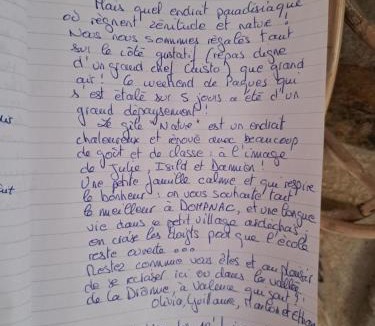 Mais quel endroit paradisiaque
où règnent zénitude et nature !
Nous nous sommes régalés tant
sur le côté gustatif (repas digne
d'un grand chef Gusto), que grand
air ! Le weekend de Pâques qui
s'est étalé sur 5 jours a été d'un
grand dépaysement.
Le gîte "Nature" est un endroit
chaleureux et rénové avec beaucoup
de goût et de classe : à l'image
de Julie, Isild et Damien !
Une petite famille calme et qui respire
le bonheur : on vous souhaite tout
le meilleur à DOMPNAC, et une longue
vie dans ce petit village ardéchois ;
en croise les doigts pour que l'école
reste ouverte ...
Restez comme vous êtes et au plaisir
de se croiser ici ou dans la vallée
de la Drôme, à Valence qui sait ?.
Olivia, Guillaume, et